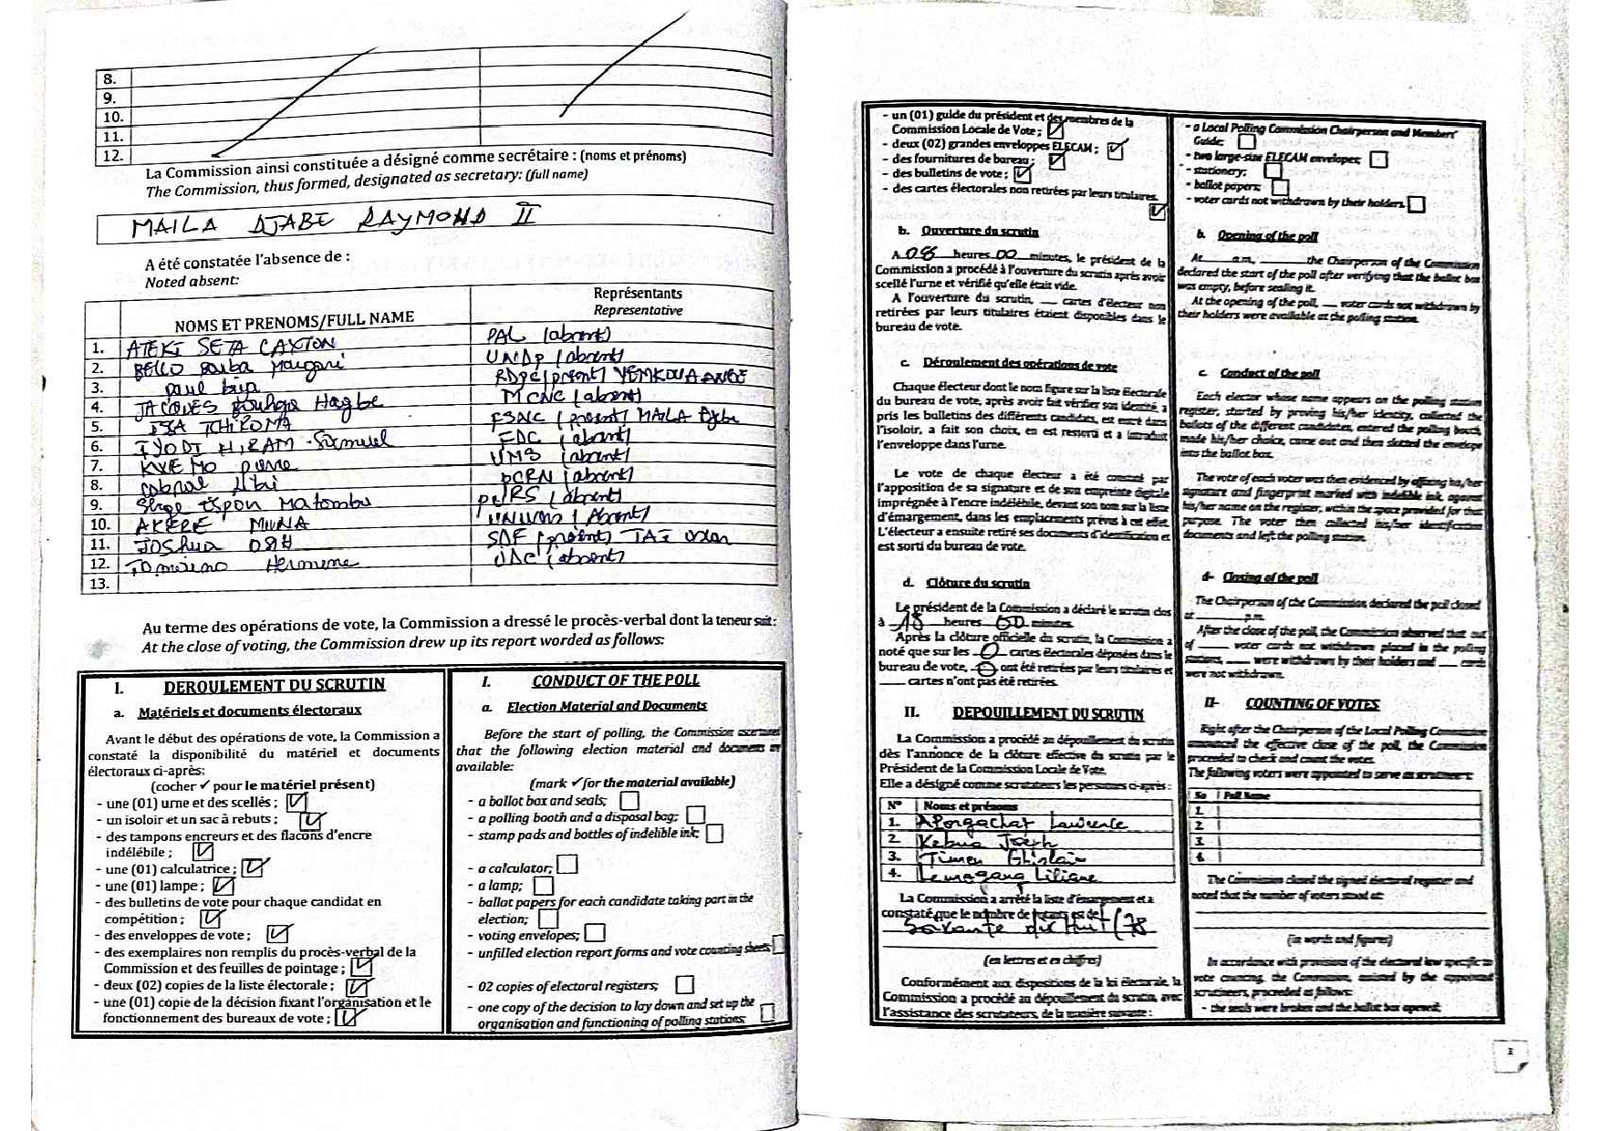 8.
9.
10.
11.
12.
La Commission ainsi constituée a désigné comme secrétaire : (noms et prénoms)
The Commission, thus formed, designated as secretary: (full name)
MAILA DJABE RAYMOND II
A été constatée l'absence de :
Noted absent:
NOMS ET PRENOMS/FULL NAME
Représentants
Representative
1. ATEKI SETA CAXTON PAL (absent)
2. BELLO Bouba Maigari UNDP (absent)
3. paul biya RDPC (present) YEMKOUA
4. JACQUES Bouhoga Hagbe MCNC (absent)
5. ISSA TCHIROMA FSNC (present) MAILA Djabe
6. IYODI HIRAM Samuel FDC (absent)
7. KWEMO pierre UMS (absent)
8. cabral libii PCRN (absent)
9. Serge Espoir Matomba PURS (absent)
10. AKERE MUNA UNIVERS (Absent)
11. JOSHUA OSIH SDF (present) TAI
12. Tomaino Hermine UDC (absent)
13.
Au terme des opérations de vote, la Commission a dressé le procès-verbal dont la teneur suit :
At the close of voting, the Commission drew up its report worded as follows:
I. DEROULEMENT DU SCRUTIN
a. Matériels et documents électoraux
Avant le début des opérations de vote, la Commission a
constaté la disponibilité du matériel et documents
électoraux ci-après:
(cocher ✓ pour le matériel présent)
- une (01) urne et des scellés ; ☑
- un isoloir et un sac à rebuts ; ☑
- des tampons encreurs et des flacons d'encre
indélébile ; ☑
- une (01) calculatrice ; ☑
- une (01) lampe ; ☑
- des bulletins de vote pour chaque candidat en
compétition ; ☑
- des enveloppes de vote ; ☑
- des exemplaires non remplis du procès-verbal de la
Commission et des feuilles de pointage ; ☑
- deux (02) copies de la liste électorale ; ☑
- une (01) copie de la décision fixant l'organisation et le
fonctionnement des bureaux de vote ; ☑
I. CONDUCT OF THE POLL
a. Election Material and Documents
Before the start of polling, the Commission ascertained
that the following election material and documents are
available:
(mark ✓ for the material available)
- a ballot box and seals; ☐
- a polling booth and a disposal bag; ☐
- stamp pads and bottles of indelible ink; ☐
- a calculator; ☐
- a lamp; ☐
- ballot papers for each candidate taking part in the
election; ☐
- voting envelopes; ☐
- unfilled election report forms and vote counting sheets ☐
- 02 copies of electoral registers; ☐
- one copy of the decision to lay down and set up the
organisation and functioning of polling stations ☐
- un (01) guide du président et des membres de la
Commission Locale de Vote ; ☑
- deux (02) grandes enveloppes ELECAM ; ☑
- des fournitures de bureau ; ☑
- des bulletins de vote ; ☑
- des cartes électorales non retirées par leurs titulaires.
☑
b. Ouverture du scrutin
A 08 heures 00 minutes, le président de la
Commission a procédé à l'ouverture du scrutin après avoir
scellé l'urne et vérifié qu'elle était vide.
A l'ouverture du scrutin, ___ cartes d'électeur non
retirées par leurs titulaires étaient disponibles dans le
bureau de vote.
c. Déroulement des opérations de vote
Chaque électeur dont le nom figure sur la liste électorale
du bureau de vote, après avoir fait vérifier son identité, a
pris les bulletins des différents candidats, est entré dans
l'isoloir, a fait son choix, en est ressorti et a introduit
l'enveloppe dans l'urne.
Le vote de chaque électeur a été constaté par
l'apposition de sa signature et de son empreinte digitale
imprégnée à l'encre indélébile, devant son nom sur la liste
d'émargement, dans les emplacements prévus à cet effet.
L'électeur a ensuite retiré ses documents d'identification et
est sorti du bureau de vote.
d. Clôture du scrutin
Le président de la Commission a déclaré le scrutin clos
à 18 heures 00 minutes.
Après la clôture officielle du scrutin, la Commission a
noté que sur les 0 cartes électorales déposées dans le
bureau de vote, 0 ont été retirées par leurs titulaires et
___ cartes n'ont pas été retirées.
II. DEPOUILLEMENT DU SCRUTIN
La Commission a procédé au dépouillement du scrutin
dès l'annonce de la clôture effective du scrutin par le
Président de la Commission Locale de Vote.
Elle a désigné comme scrutateurs les personnes ci-après :
N° Noms et prénoms
1. Lawrence
2. Kebua Joseph
3. Timen Ghislain
4. Lemogang Liliane
La Commission a arrêté la liste d'émargement et a
constaté que le nombre de votants est de
Soixante dix Huit / 78
(en lettres et en chiffres)
Conformément aux dispositions de la loi électorale, la
Commission a procédé au dépouillement du scrutin, avec
l'assistance des scrutateurs, de la manière suivante :
- a Local Polling Commission Chairperson and Members'
Guide; ☐
- two large-size ELECAM envelopes; ☐
- stationery; ☐
- ballot papers; ☐
- voter cards not withdrawn by their holders. ☐
b. Opening of the poll
At ___ a.m, ___ the Chairperson of the Commission
declared the start of the poll after verifying that the ballot box
was empty, before sealing it.
At the opening of the poll, ___ voter cards not withdrawn by
their holders were available at the polling station.
c. Conduct of the poll
Each elector whose name appears on the polling station
register, started by proving his/her identity, collected the
ballots of the different candidates, entered the polling booth,
made his/her choice, came out and then slotted the envelope
into the ballot box.
The vote of each voter was then evidenced by affixing his/her
signature and fingerprint marked with indelible ink, against
his/her name on the register, within the space provided for that
purpose. The voter then collected his/her identification
documents and left the polling station.
d- Closing of the poll
The Chairperson of the Commission declared the poll closed
at ___ p.m.
After the close of the poll, the Commission observed that out
of ___ voter cards not withdrawn placed in the polling
stations, ___ were withdrawn by their holders and ___ cards
were not withdrawn.
II- COUNTING OF VOTES
Right after the Chairperson of the Local Polling Commission
announced the effective close of the poll, the Commission
proceeded to check and count the votes.
The following voters were appointed to serve as scrutineers:
No Full Name
1.
2.
3.
4.
The Commission closed the signed electoral register and
noted that the number of voters stood at:
(in words and figures)
In accordance with provisions of the electoral law specific to
vote counting, the Commission, assisted by the appointed
scrutineers, proceeded as follows:
- the seals were broken and the ballot box opened;